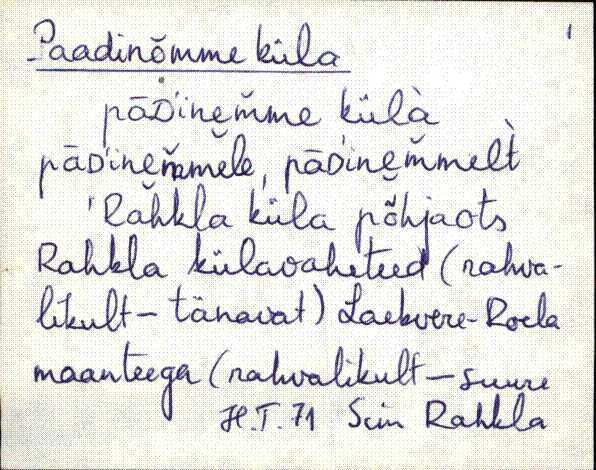 1
Paadinõmme küla
pāᴅ́ine̮m̆me külà
pāᴅ́ine̮m̆mele, pāᴅ́ine̮m̆melt̀
'Răhkla küla põ̆hjaots
Rahkla külavaheteed (rahva-
likult – tänavat) Laekvere-Roela
maanteega (rahvalikult – suure
H.T. 71 Sim Rahkla